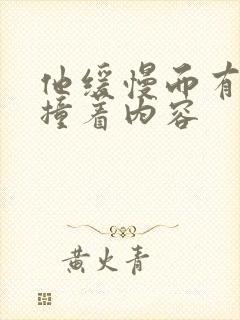 他缓慢而有
撞着内容
黄火青